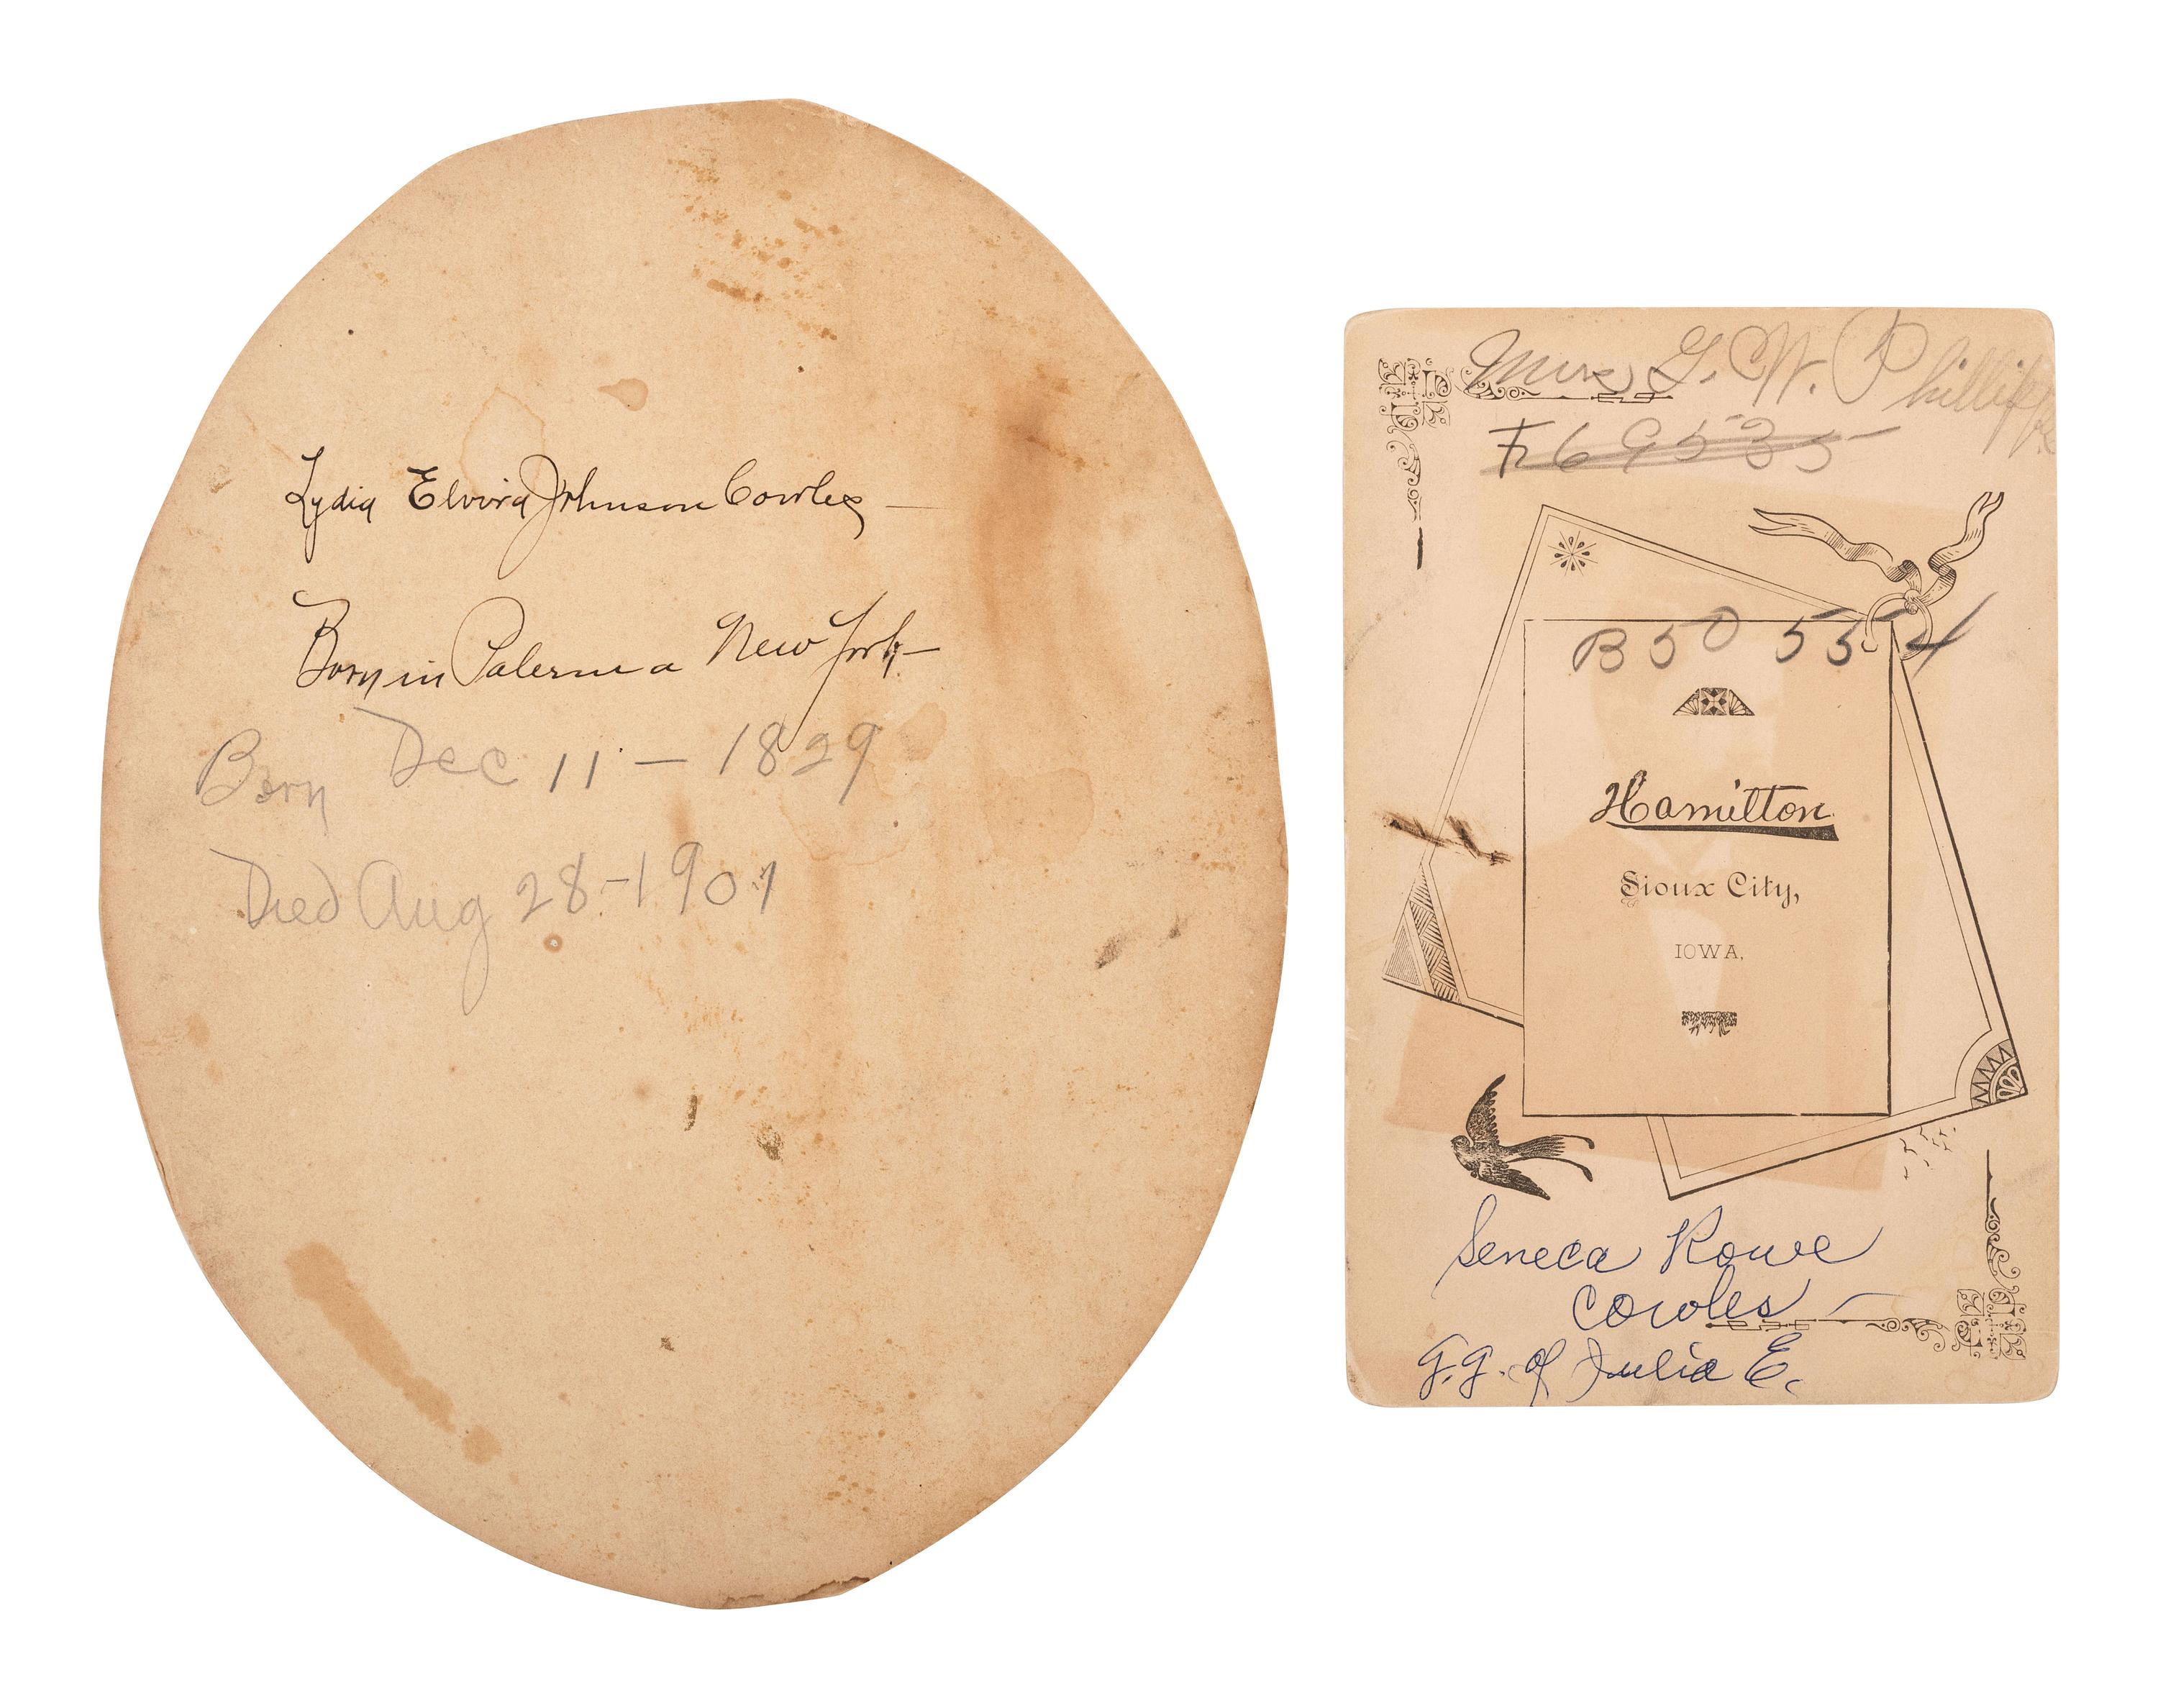 Lydia Elvira Johnson Cowles —
Born in Palerma New York —
Born Dec 11 – 1829
Died Aug 28 – 1901
Mrs G. W. Phillipps
F 69535
B50 554
Hamilton
Sioux City,
IOWA.
Seneca Rowe
Cowles —
G.G. of Julia E.